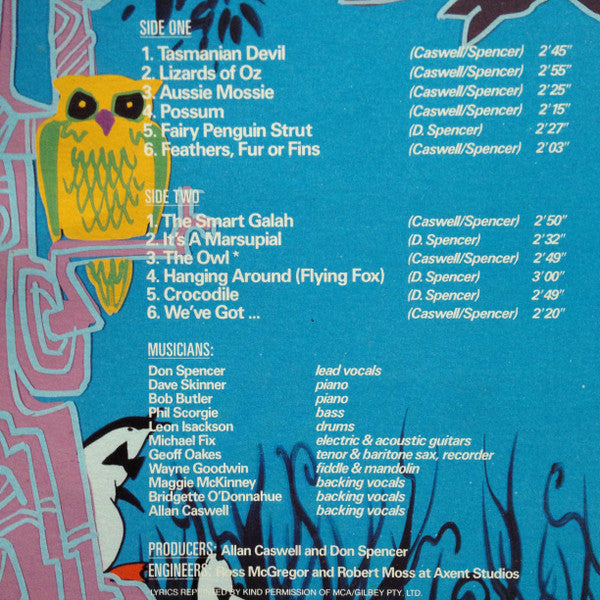 SIDE ONE
1. Tasmanian Devil (Caswell/Spencer) 2'45"
2. Lizards of Oz (Caswell/Spencer) 2'55"
3. Aussie Mossie (Caswell/Spencer) 2'25"
4. Possum (Caswell/Spencer) 2'15"
5. Fairy Penguin Strut (D. Spencer) 2'27"
6. Feathers, Fur or Fins (Caswell/Spencer) 2'03"
SIDE TWO
1. The Smart Galah (Caswell/Spencer) 2'50"
2. It's A Marsupial (D. Spencer) 2'32"
3. The Owl * (Caswell/Spencer) 2'49"
4. Hanging Around (Flying Fox) (D. Spencer) 3'00"
5. Crocodile (D. Spencer) 2'49"
6. We've Got ... (Caswell/Spencer) 2'20"
MUSICIANS:
Don Spencer lead vocals
Dave Skinner piano
Bob Butler piano
Phil Scorgie bass
Leon Isackson drums
Michael Fix electric & acoustic guitars
Geoff Oakes tenor & baritone sax, recorder
Wayne Goodwin fiddle & mandolin
Maggie McKinney backing vocals
Bridgette O'Donnahue backing vocals
Allan Caswell backing vocals
PRODUCERS: Allan Caswell and Don Spencer
ENGINEERS: Ross McGregor and Robert Moss at Axent Studios
LYRICS REPRINTED BY KIND PERMISSION OF MCA/GILBEY PTY. LTD.